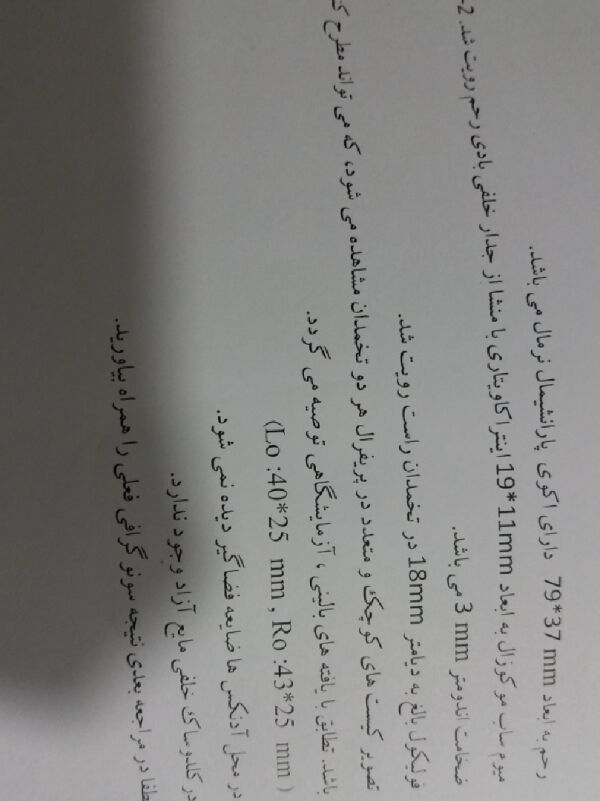 رحم به ابعاد 79*37 mm دارای اکوی پارانشیمال نرمال می باشد.
میوم ساب موکوزال به ابعاد 19*11mm اینتراکاویتاری با منشا از جدار خلفی بادی رحم رویت شد. 2-
ضخامت اندومتر 3 mm می باشد.
فولیکول بالغ به دیامتر 18mm در تخمدان راست رویت شد.
تصویر کیست های کوچک و متعدد در پریفرال هر دو تخمدان مشاهده می شود، که می تواند مطرح
باشد. تطابق با یافته های بالینی ، آزمایشگاهی توصیه می گردد.
(Lo :40*25 mm , Ro :43*25 mm )
در محل آدنکس ها ضایعه فضاگیر دیده نمی شود.
در کلدوساک خلفی مایع آزاد وجود ندارد.
طفا در مراجعه بعدی نتیجه سونوگرافی فعلی را همراه بیاورید.